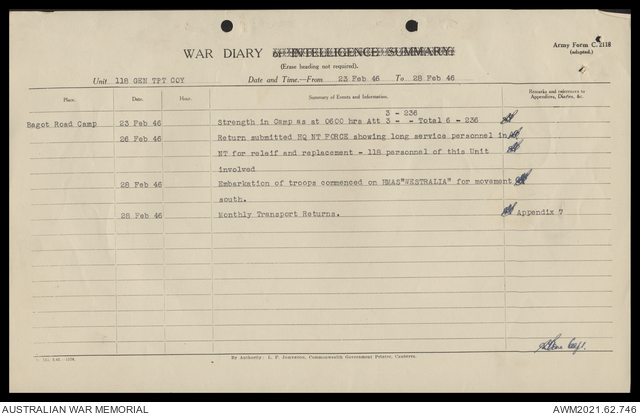 Army Form C. 2118
(adapted.)
WAR DIARY or INTELLIGENCE SUMMARY.
(Erase heading not required).
Unit 118 GEN TPT COY Date and Time.—From 23 Feb 46 To 28 Feb 46
Place. Date. Hour. Summary of Events and Information. Remarks and references to Appendices, Diaries, &c.
3 - 236
Bagot Road Camp 23 Feb 46 Strength in Camp as at 0600 hrs Att 3 - - Total 6 - 236
26 Feb 46 Return submitted HQ NT FORCE showing long service personnel in
NT for releif and replacement - 118 personnel of this Unit
involved
28 Feb 46 Embarkation of troops commenced on HMAS"WESTRALIA" for movement
south.
28 Feb 46 Monthly Transport Returns. Appendix 7
Capt.
By Authority: L. F. Johnston, Commonwealth Government Printer, Canberra.
AUSTRALIAN WAR MEMORIAL AWM2021.62.746